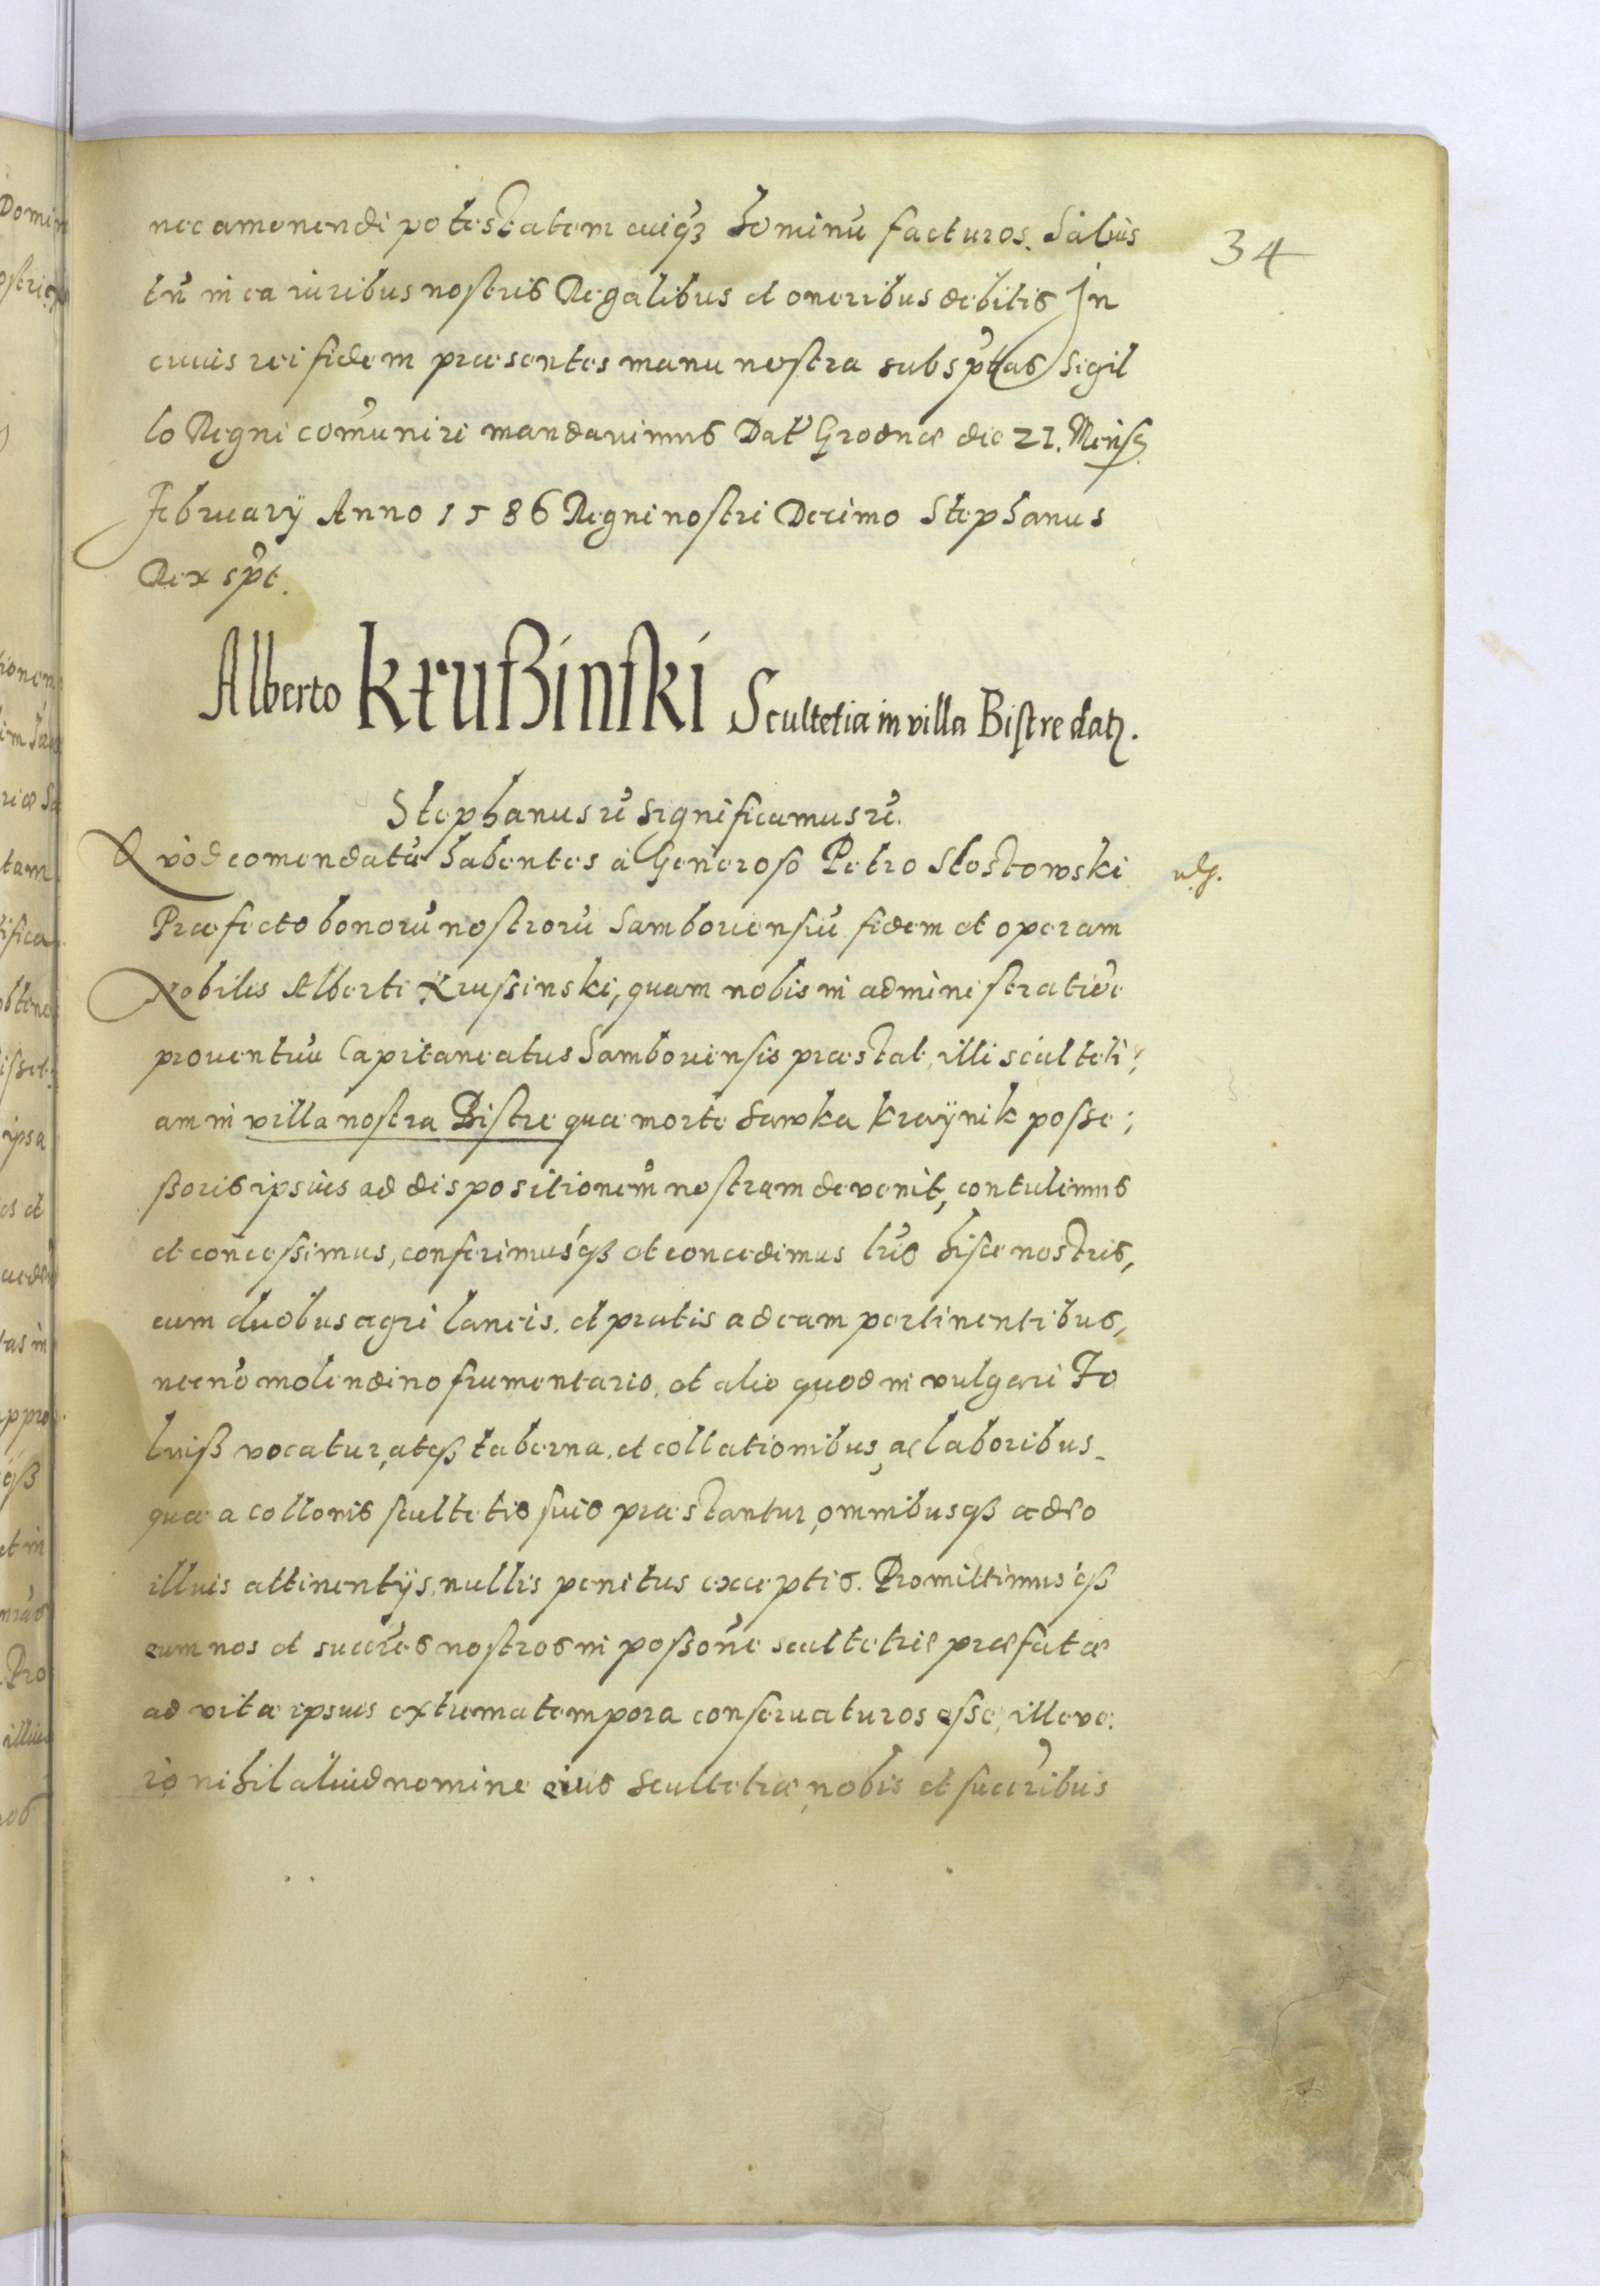 34
nec amonendi potestatem cuiqȝ hominū facturos. Saluis
tn̄ in ea iuribus nostris Regalibus et oneribus debitis In
cuius rei fidem præsentes manu nostra subsptas Sigil
lo Regni com̄uniri mandauimus Dat Grodnæ die 21. Mensꝭ
February Anno 1586 Regni nostri Decimo Stephanus
Rex spt.
Alberto Krußinski Scultetia in villa Bistre datȝ.
Stephanus rē significamus rē.
Quod comendatā habentes à Generoso Petro Słostowski
Præfecto bonorū nostrorū Samboriensiū fidem et operam
Nobilis Alberti Krussinski, quam nobis in administratiōe
prouentuū Capitaneatus Samboriensis præstat, illi scultetiam
am in villa nostra Bistre quæ morte Sawka Kraynik posse;
ßoris ipsius ad dispositionem nostram devenit, contulimus
et concessimus, conferimusqß et concedimus lr̄is hisce nostris,
cum duobus agri laneis, et pratis ad eam pertinentibus,
necnō molendino frumentario, et alio quod in vulgari Fo
luß vocatur, atqß taberna, et collationibus, ac laboribus
quæ a collonis scultetis suis præstantur, omnibusqß adeo
illius attinentijs, nullis penitus exceptis. Promittimusqß
eum nos et succr̄es nostros in posson̄e scultetiæ præfatæ
ad vitæ ipsius extrema tempora conseruaturos esse, ille ve:
ro nihil aliud nomine eius Scultetiæ, nobis et succr̄ibus